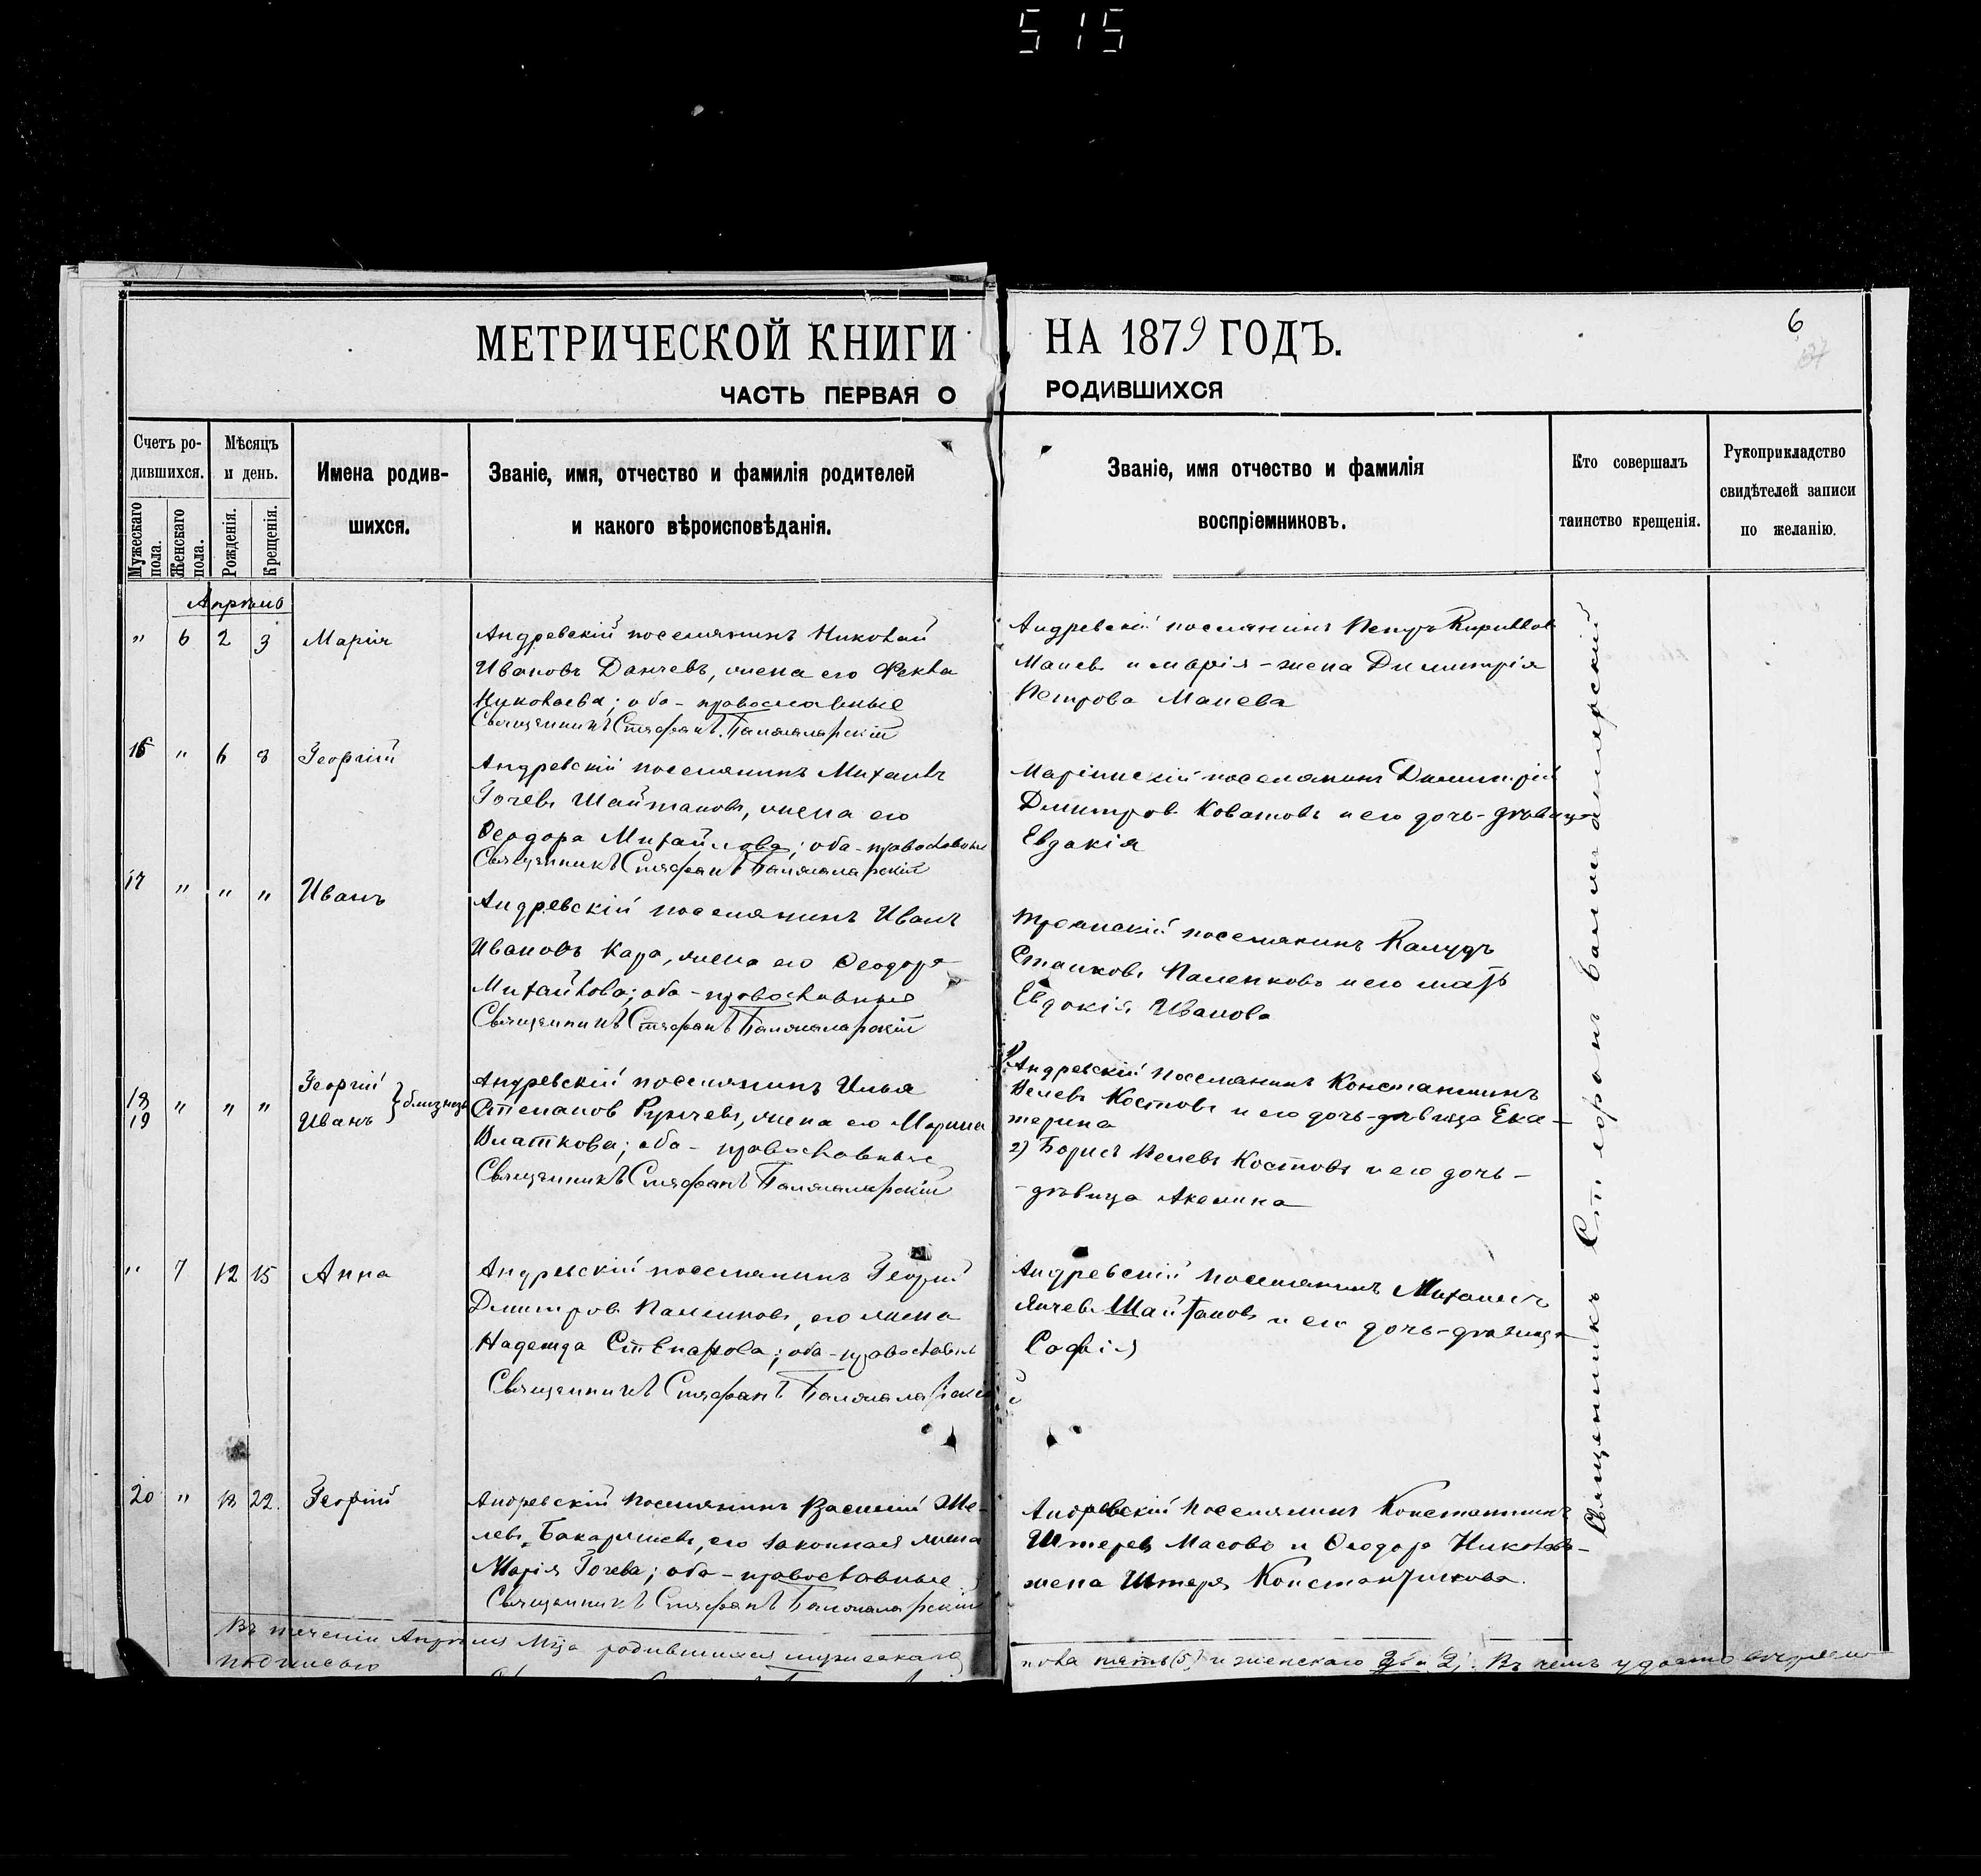 515
МЕТРИЧЕСКОЙ КНИГИ НА 1879 ГОДЪ.
6
ЧАСТЬ ПЕРВАЯ О РОДИВШИХСЯ
Счетъ ро-
дившихся.
Мужескаго пола.
Женскаго пола.
Мѣсяцъ
и день.
Рожденія.
Крещенія.
Имена родив-
шихся.
Званіе, имя, отчество и фамилія родителей
и какого вѣроисповѣданія.
Званіе, имя отчество и фамилія
воспріемниковъ.
Кто совершалъ
таинство крещенія.
Рукоприкладство
свидѣтелей записи
по желанію.
Апрѣль
" 6 2 3 Марія
Андревскій поселянинъ Николай
Ивановъ Данчевъ, жена его Фекла
Николаева; оба - православные
Священникъ Стефанъ
Андревскій поселянинъ Петръ Кириллов
Манев и марія - жена Димитрія
Петрова Манева
16 " 6 8 Георгій
Андревскій поселянинъ Михаилъ
Гочевъ Шайтановъ, жена его
Ѳеодора Михайлова; оба - православные
Священникъ Стефанъ
Маріинскій поселянинъ Димитрій
Дмитров Коватовъ и его дочь - дѣвица
Евдокія
17 " " " Иванъ
Андревскій поселянинъ Иванъ
Ивановъ Кара, жена его Ѳеодора
Михайлова; оба - православные
Священникъ Стефанъ
Троянскій поселянинъ
Станковъ и его мать
Евдокія Иванова
18 " " " Георгій
19 Иванъ } близнецы
Андревскій поселянинъ Илья
Степанов жена его Марина
Златкова; оба - православные
Священникъ Стефанъ
1) Андревскій поселянинъ Константинъ
Велевъ Костовъ и его дочь - дѣвица Ека-
терина
2) Борисъ Велевъ Костовъ и его дочь -
- дѣвица Акелина
" 7 12 15 Анна
Андревскій поселянинъ Георгій
Дмитров его жена
Надежда Степанова; оба - православные
Священникъ Стефанъ
Андревскій поселянинъ Михаилъ
Янчевъ Шайтановъ и его дочь - дѣвица
Софія
20 " 18 22. Георгій
Андревскій поселянинъ Василій Же-
левъ его законная жена
Марія Гочева; оба - православные
Священникъ Стефанъ
Андревскій поселянинъ Константинъ
Штеревъ Масовъ и Ѳеодора Николова -
жена Штеря Константинова.
Священникъ Стефанъ
Въ теченіи Апрѣля Мца родившихся мужескаго пола пять (5) и женскаго два 2; Въ чемъ удостовѣряемъ
подписью